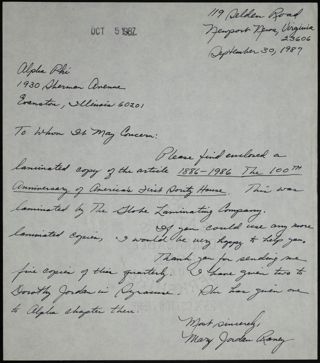 OCT 5 1987
119 Selden Road
Newport News, Virginia
23606
September 30, 1987
Alpha Phi
1930 Sherman Avenue
Evanston, Illinois 60201
To Whom It May Concern:
Please find enclosed a
laminated copy of the article 1886-1986 The 100TH
Anniversary of America's First Sorority House. This was
laminated by The Globe Laminating Company.
If you could use any more
laminated copies, I would be very happy to help you.
Thank you for sending me
five copies of this quarterly. I have given two to
Dorothy Jordan in Syracuse. She has given one
to Alpha chapter there.
Most sincerely,
Mary Jordan